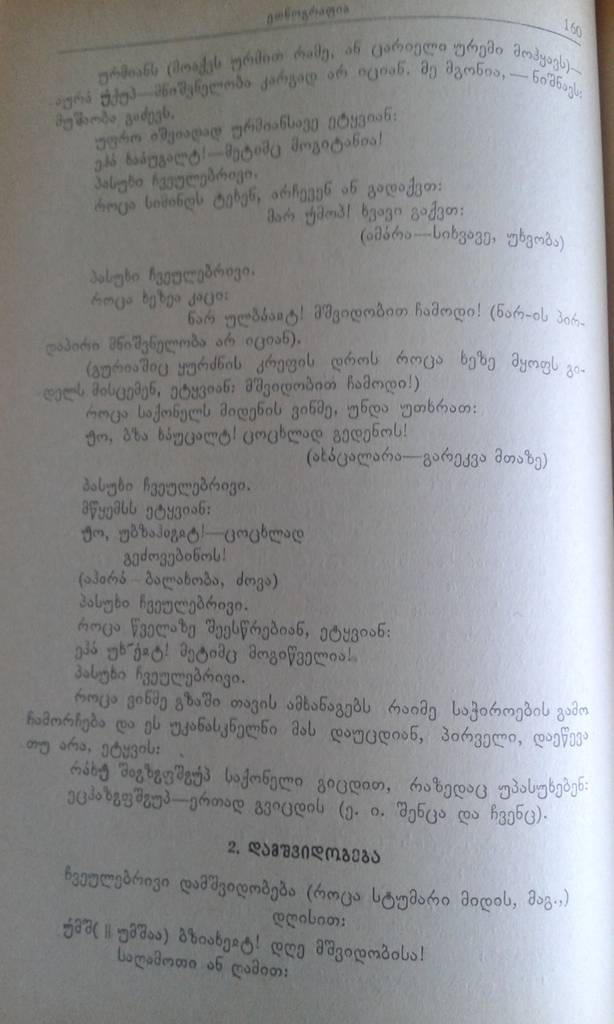 ეთნოგრაფია
160
ურმიანს (მოაქვს ურმით რამე, ან ცარიელი ურემი მოჰყავს)—
მნიშვნელობა კარგად არ იციან. მე მგონია,— ნიშნავს:
მუშაობა გიძევს.
უფრო იშვიადად ურმიანსავე ეტყვიან:
—მეტიმც მოგიტანია!
პასუხი ჩვეულებრივი.
როცა სიმინდს ტეხენ, არჩევენ ან გადაქვთ:
ხვავი გაქვთ:
(ამარა—სიხვავე, უხვობა)
პასუხი ჩვეულებრივი.
როცა ხეზეა კაცი:
მშვიდობით ჩამოდი! (ნარ-ის პირ-
დაპირი მნიშვნელობა არ იციან).
(გურიაშიც ყურძნის კრეფის დროს როცა ხეზე მყოფს გი-
დელს მისცემენ, ეტყვიან: მშვიდობით ჩამოდი!)
როცა საქონელს მიდენის ვინმე, უნდა უთხრათ:
ცოცხლად გედენოს!
(—გარეკვა მთაზე)
პასუხი ჩვეულებრივი.
მწყემსს ეტყვიან:
—ცოცხლად
გეძოვებინოს!
(აჰირა—ბალახობა, ძოვა)
პასუხი ჩვეულებრივი.
როცა წველაზე შეესწრებიან, ეტყვიან:
მეტიმც მოგიწველია!
პასუხი ჩვეულებრივი.
როცა ვინმე გზაში თავის ამხანაგებს რაიმე საჭიროების გამო
ჩამორჩება და ეს უკანასკნელნი მას დაუცდიან, პირველი, დაეწევა
თუ არა, ეტყვის:
საქონელი გიცდით, რაზედაც უპასუხებენ:
—ერთად გვიცდის (ე. ი. შენცა და ჩვენც).
2. დამშვიდობება
ჩვეულებრივი დამშვიდობება (როცა სტუმარი მიდის, მაგ.,)
დღისით:
დღე მშვიდობისა!
საღამოთი ან ღამით: